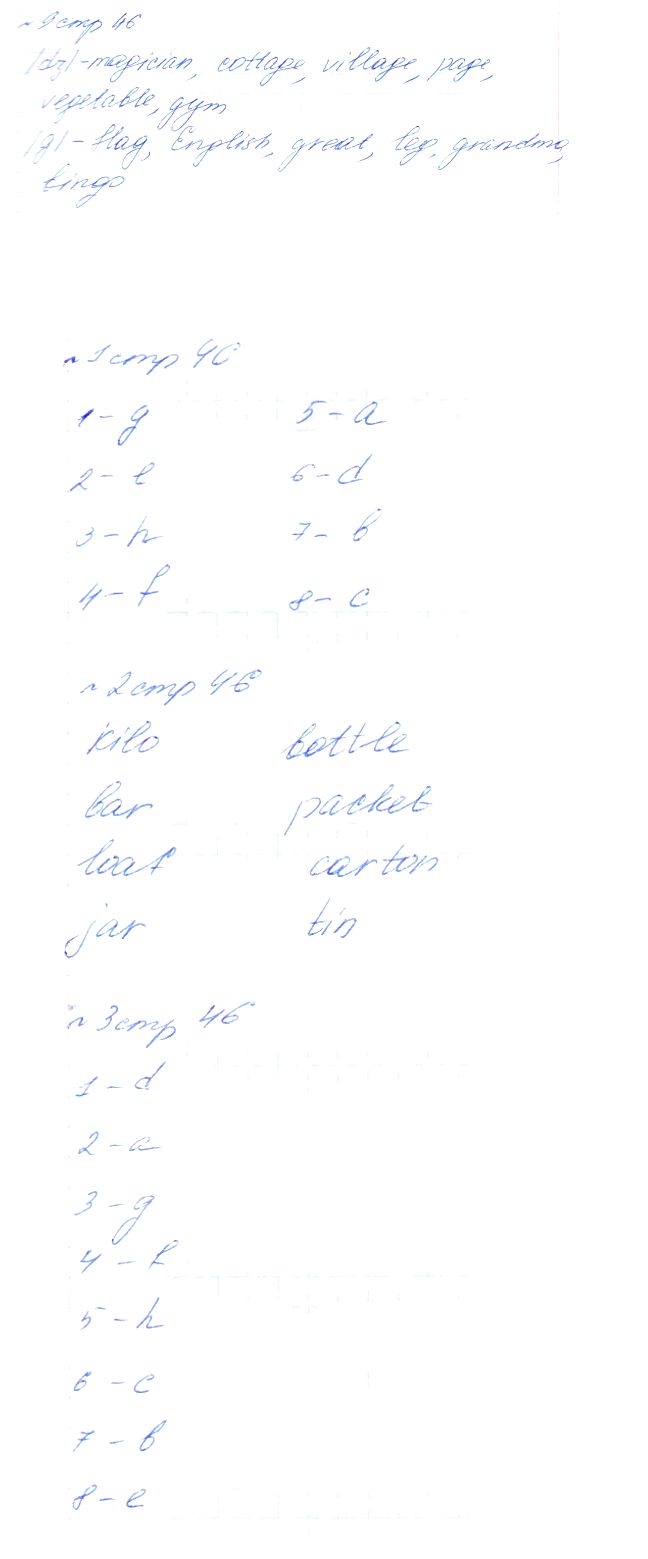 ~ 9 стр 46
/dʒ/ - magician, cottage, village, page,
vegetable, gym
/g/ - flag, English, great, leg, grandma,
bingo
~ 1 стр 46
1 - g 5 - a
2 - e 6 - d
3 - h 7 - b
4 - f 8 - c
~ 2 стр 46
kilo bottle
bar packet
loaf carton
jar tin
~ 3 стр 46
1 - d
2 - a
3 - g
4 - f
5 - h
6 - c
7 - b
8 - e